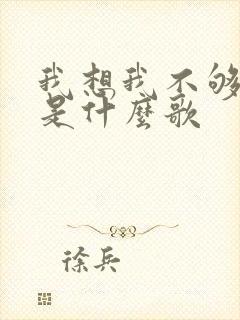 我想我不够
是什麼歌
徐兵